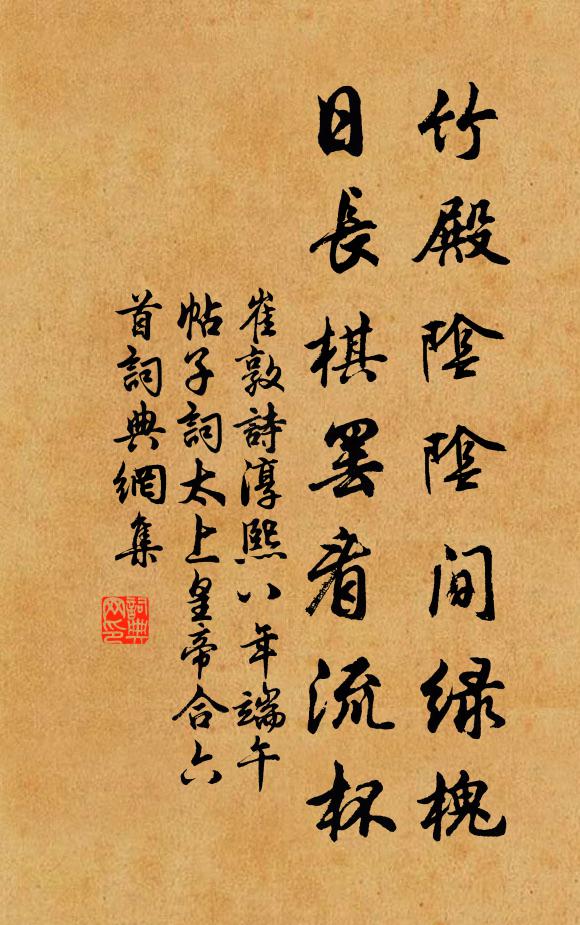 竹殿陰陰間緑槐
日長棋罷看流杯
崔敦詩淳熙八年端午
帖子詞太上皇帝合六
首詞典網集
詞典
网印